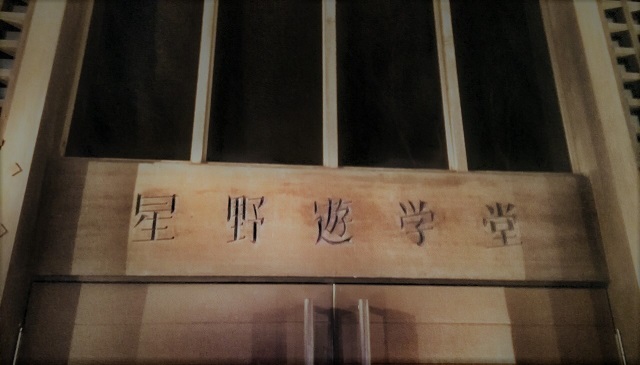 星野遊学堂